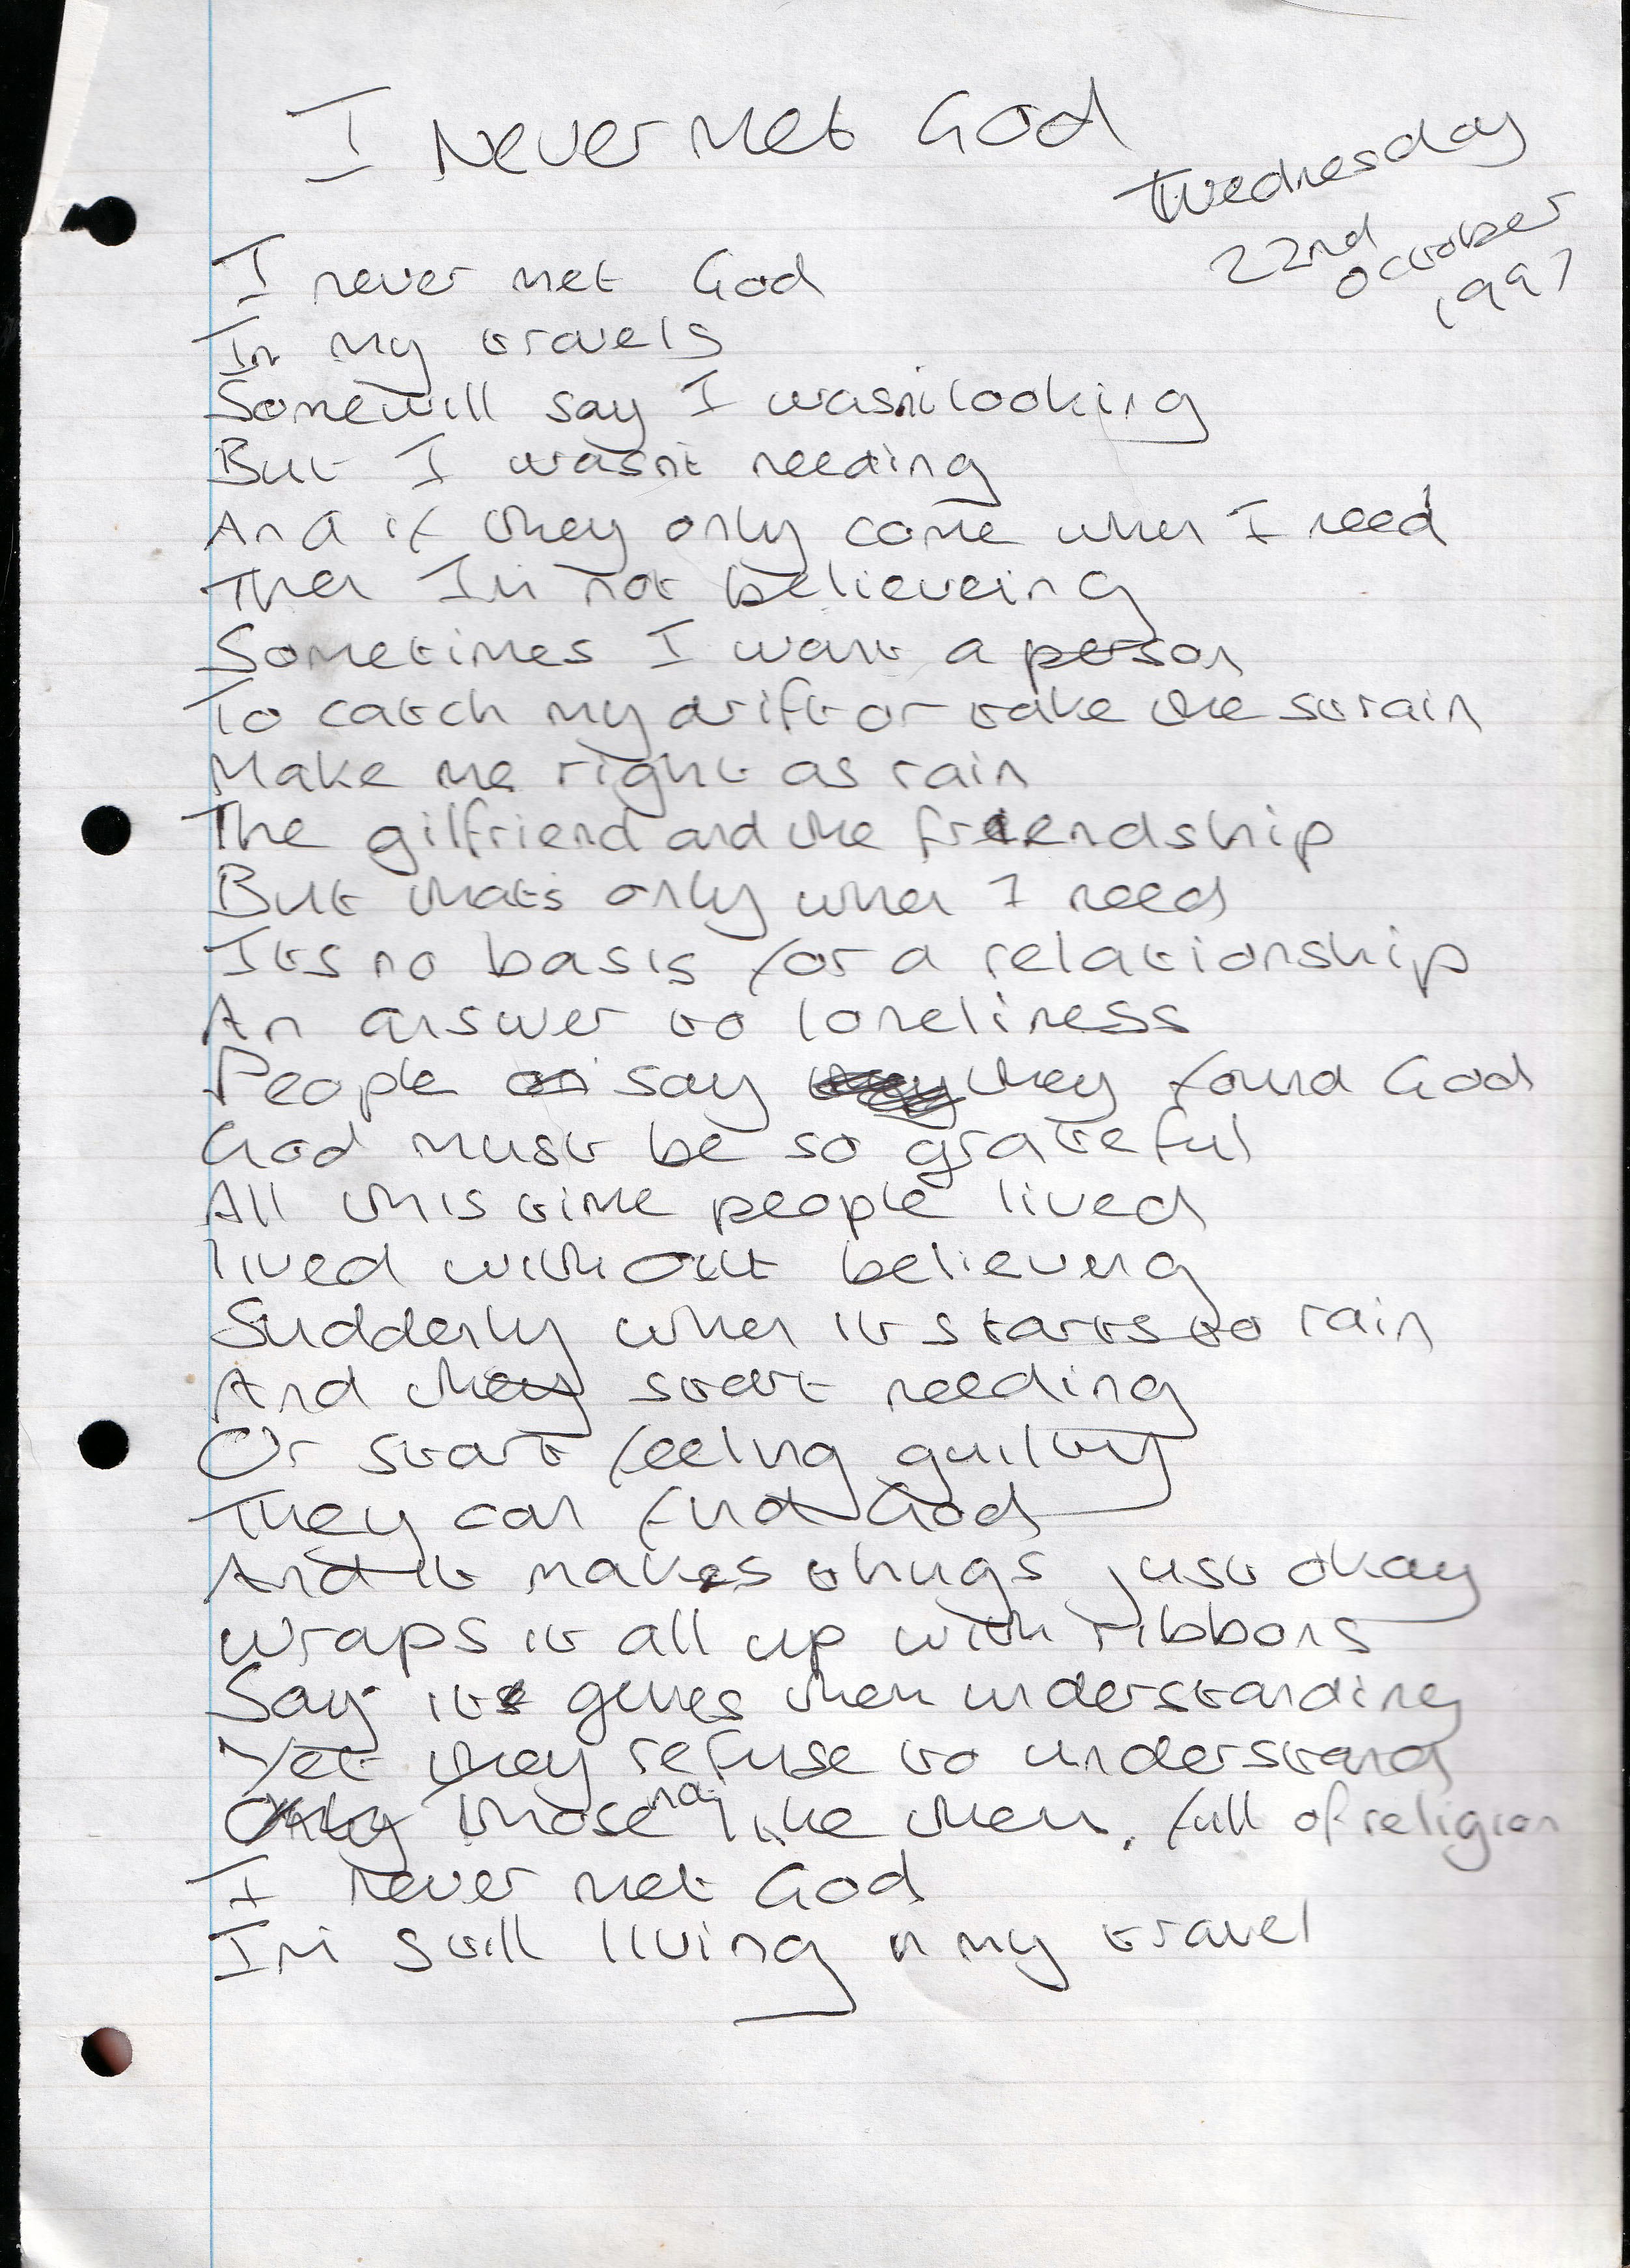 I Never Met God
Wednesday
22nd
October
1997
I never met God
In my travels
Some will say I wasn't looking
But I wasn't needing
And if they only come when I need
Then I'm not believeing
Sometimes I want a person
To catch my drift or take the strain
Make me right as rain
The gilfriend and the friendship
But that's only when I need
Its no basis for a relationship
An answer to loneliness
People say they found God
God must be so grateful
All this time people lived
lived without believing
Suddenly when it starts to rain
And they start needing
Or start feeling guilty
They can find God
And it makes things just okay
Wraps it all up with ribbons
Say it gives them understanding
Yet they refuse to understand
those not like them, full of religion
I never met God
I'm still living in my travel